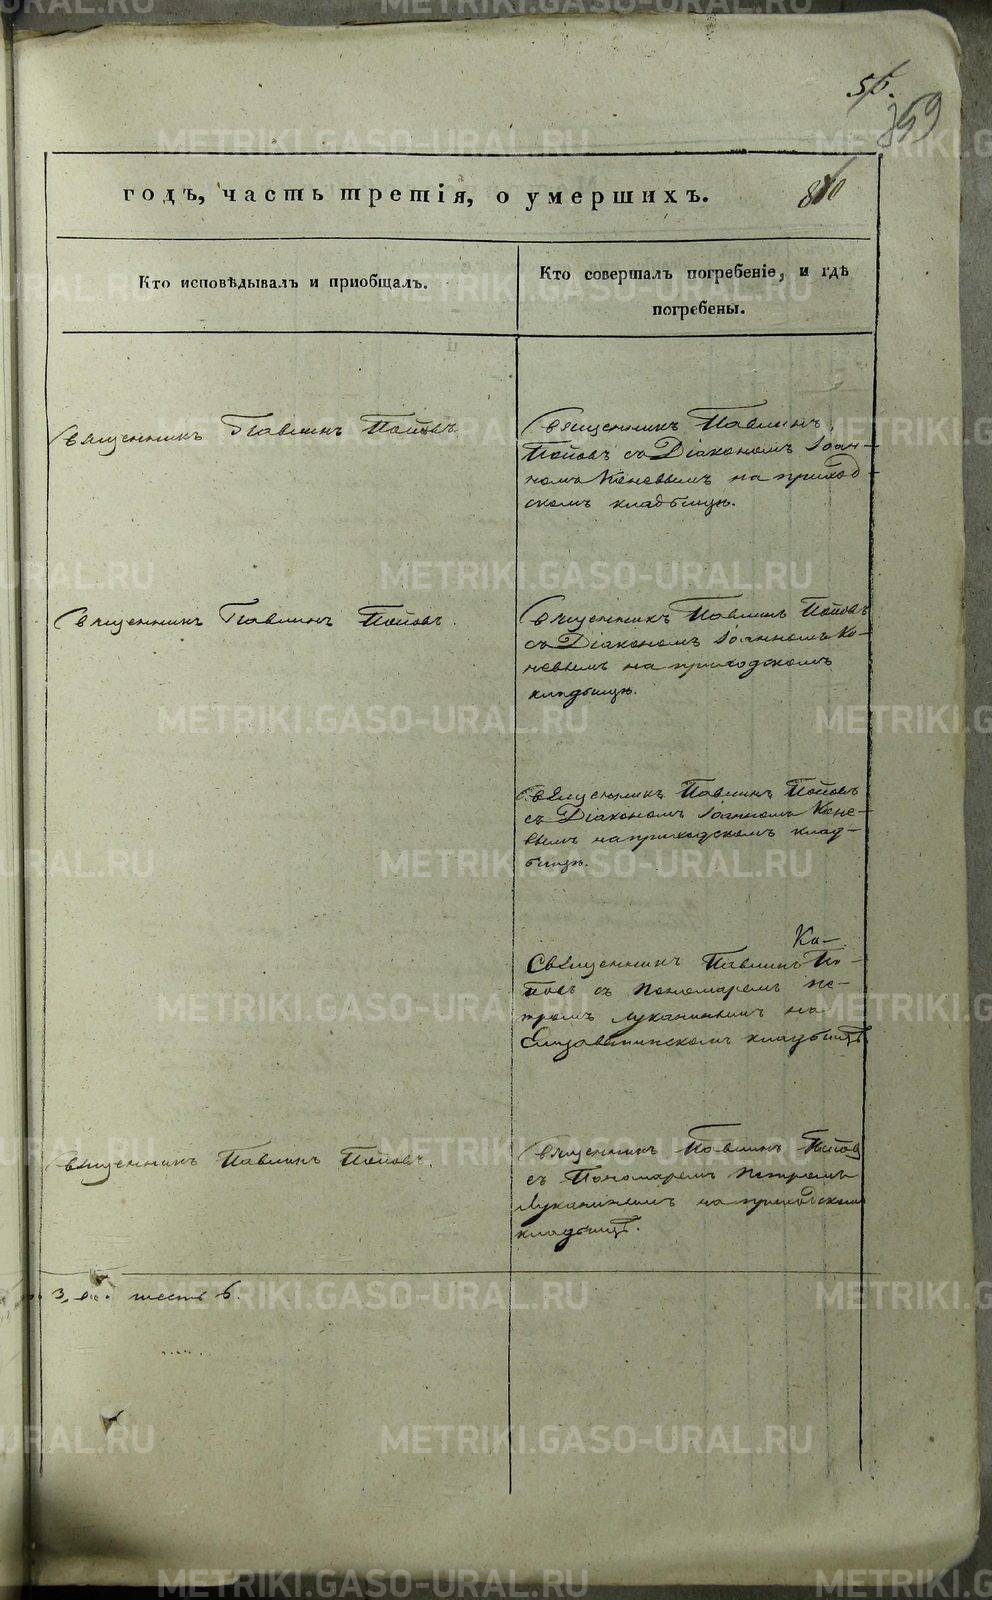 56.
359
годъ, часть третія, о умершихъ.
860
Кто исповѣдывалъ и приобщалъ.
Кто совершалъ погребеніе, и гдѣ
погребены.
Священникъ Павлинъ Поповъ
Священникъ Павлинъ
Поповъ съ Діакономъ Іоан-
номъ Коневымъ на приход-
скомъ кладбищѣ.
Священникъ Павлинъ Поповъ.
Священникъ Павлинъ Поповъ
съ Діакономъ Іоанномъ Ко-
невымъ на приходскомъ
кладбищѣ.
Священникъ Павлинъ Поповъ
съ Діакономъ Іоанномъ Коне-
вымъ на приходскомъ клад-
бищѣ.
Священникъ Павлинъ По-
повъ съ Пономаремъ Пе-
тромъ Луканинымъ на
Елизаветинскомъ кладбищѣ
Священникъ Павлинъ Поповъ.
Священникъ Павлинъ Поповъ
съ Пономаремъ Петромъ
Луканинымъ на приходскомъ
кладбищѣ.
3, шесть 6.
METRIKI.GASO-URAL.RU